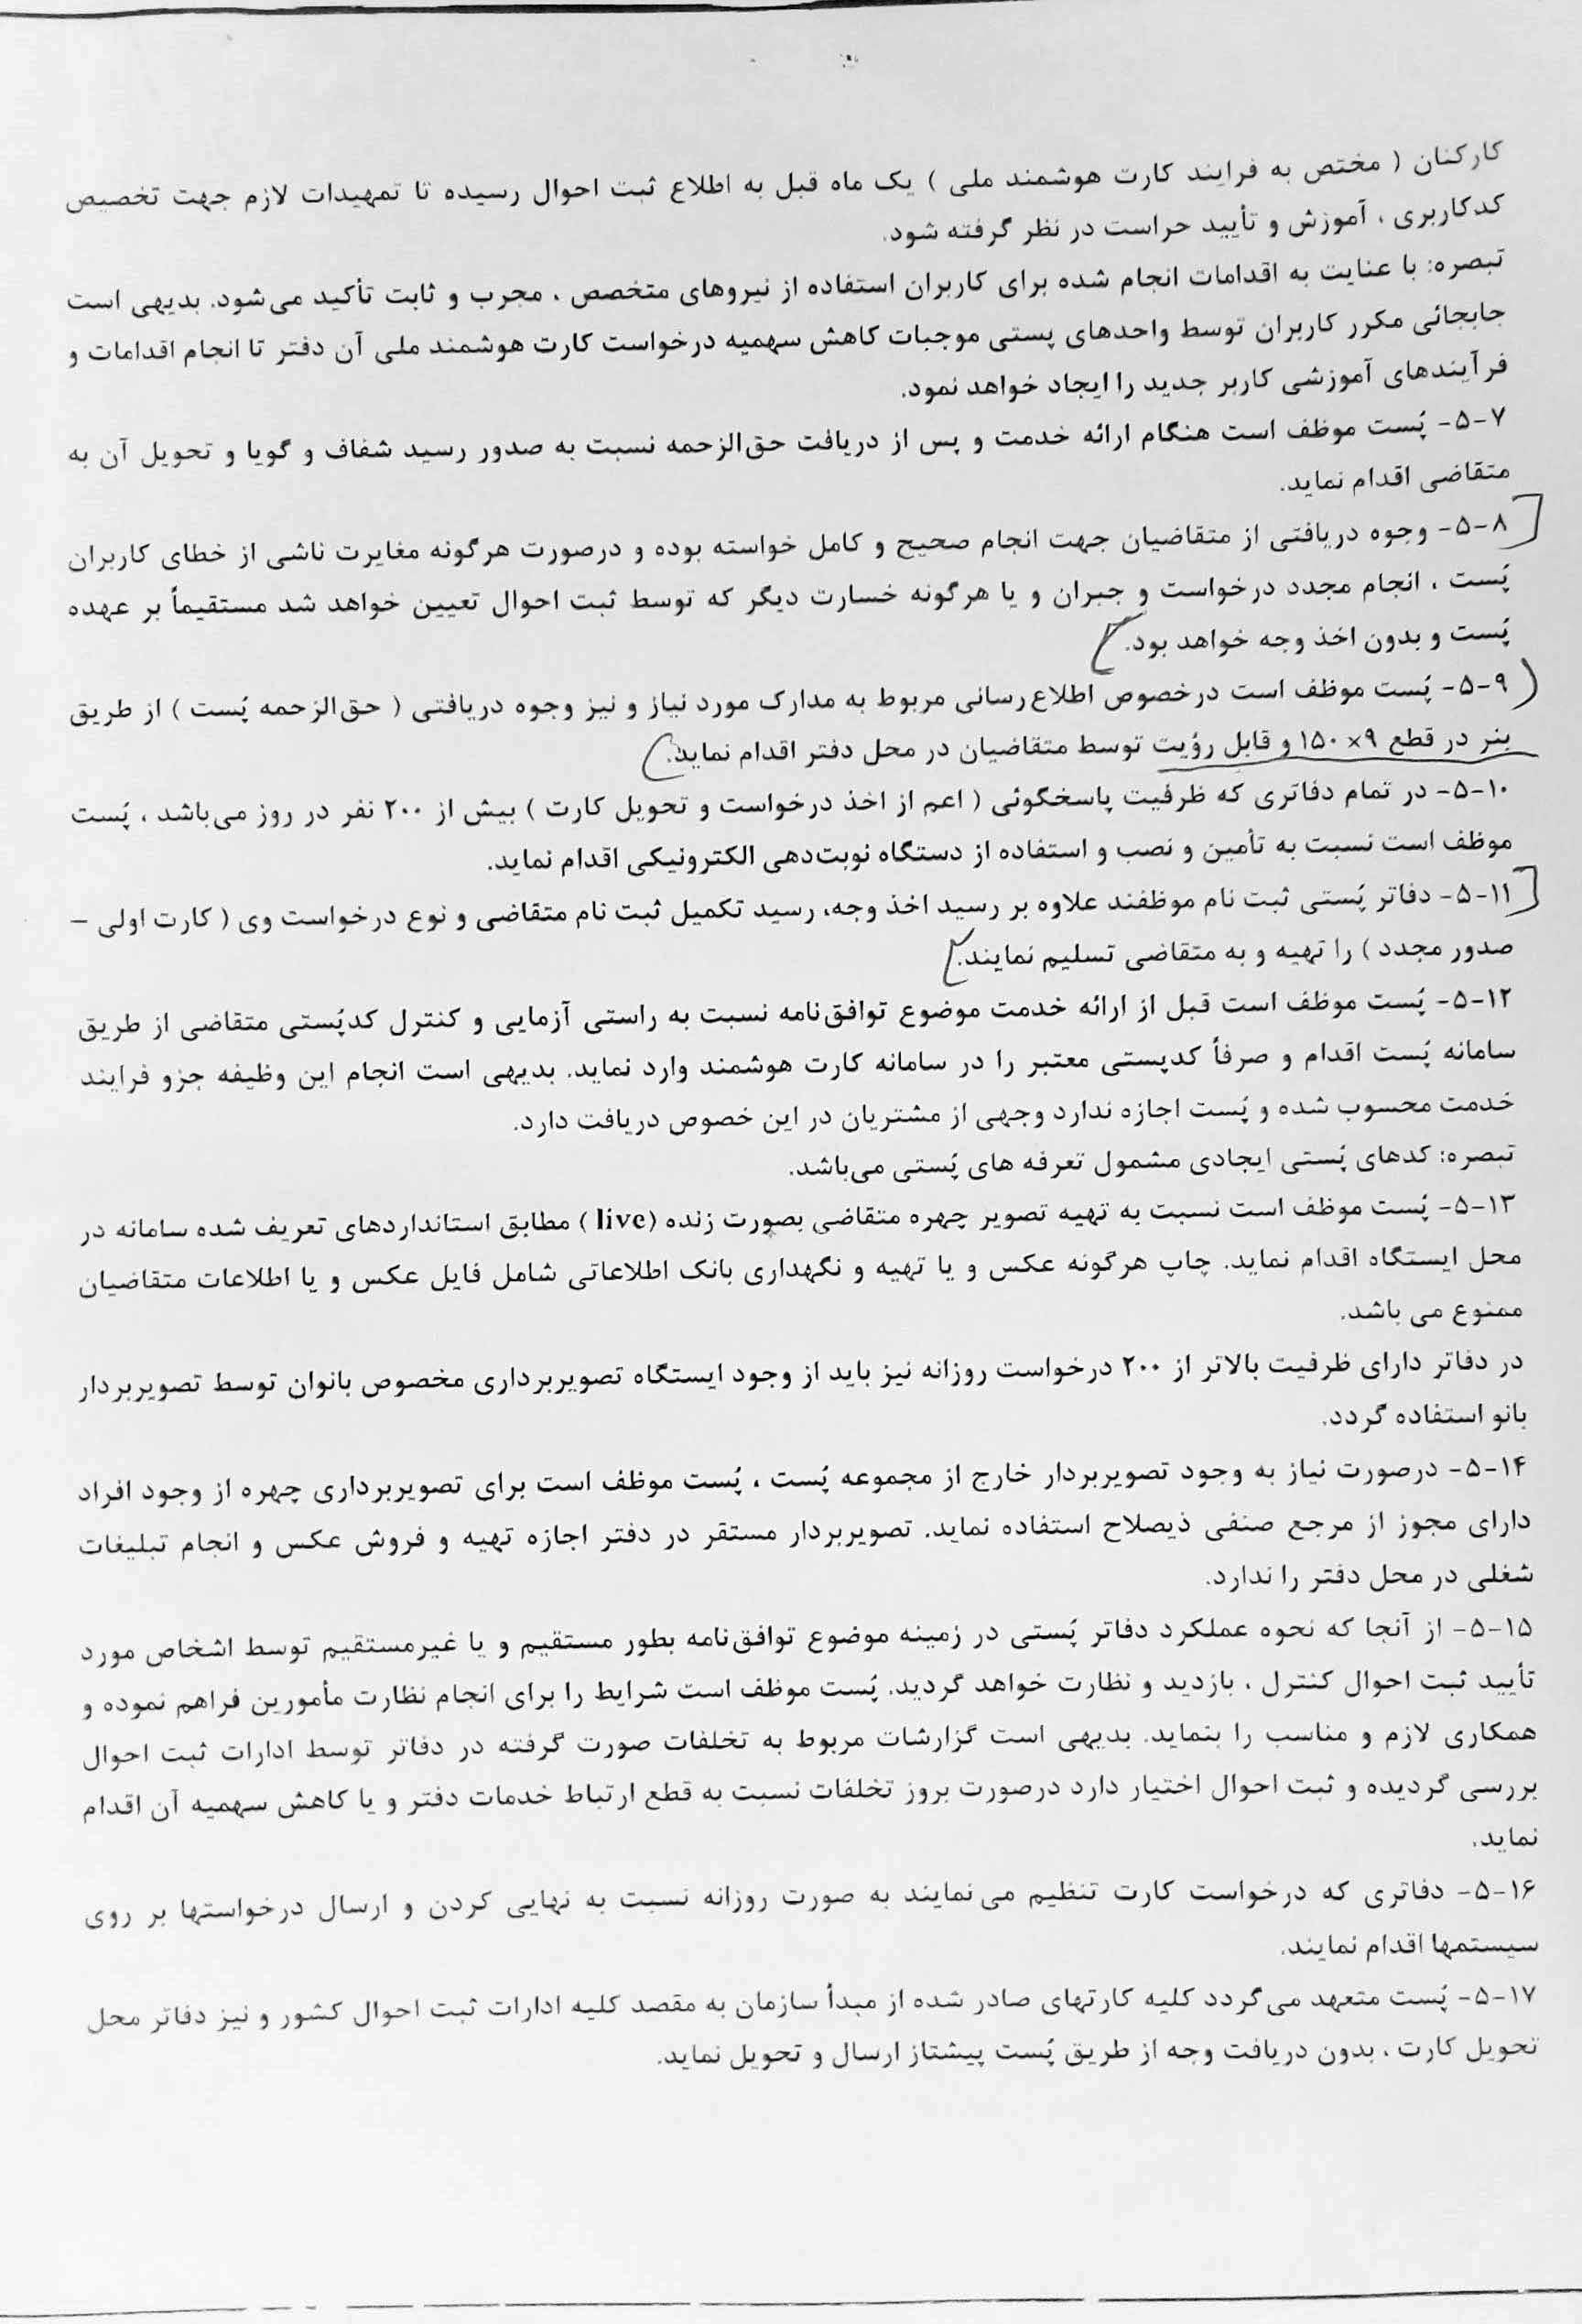 کارکنان ( مختص به فرایند کارت هوشمند ملی ) یک ماه قبل به اطلاع ثبت احوال رسیده تا تمهیدات لازم جهت تخصیص
کدکاربری ، آموزش و تأیید حراست در نظر گرفته شود.
تبصره: با عنایت به اقدامات انجام شده برای کاربران استفاده از نیروهای متخصص ، مجرب و ثابت تأکید می‌شود. بدیهی است
جابجائی مکرر کاربران توسط واحدهای پستی موجبات کاهش سهمیه درخواست کارت هوشمند ملی آن دفتر تا انجام اقدامات و
فرآیندهای آموزشی کاربر جدید را ایجاد خواهد نمود.
۵-۷- پُست موظف است هنگام ارائه خدمت و پس از دریافت حق‌الزحمه نسبت به صدور رسید شفاف و گویا و تحویل آن به
متقاضی اقدام نماید.
۵-۸- وجوه دریافتی از متقاضیان جهت انجام صحیح و کامل خواسته بوده و درصورت هرگونه مغایرت ناشی از خطای کاربران
پُست ، انجام مجدد درخواست و جبران و یا هرگونه خسارت دیگر که توسط ثبت احوال تعیین خواهد شد مستقیماً بر عهده
پُست و بدون اخذ وجه خواهد بود.
۵-۹- پُست موظف است درخصوص اطلاع‌رسانی مربوط به مدارک مورد نیاز و نیز وجوه دریافتی ( حق‌الزحمه پُست ) از طریق
بنر در قطع ۹×۱۵۰ و قابل رؤیت توسط متقاضیان در محل دفتر اقدام نماید.
۵-۱۰- در تمام دفاتری که ظرفیت پاسخگوئی ( اعم از اخذ درخواست و تحویل کارت ) بیش از ۲۰۰ نفر در روز می‌باشد ، پُست
موظف است نسبت به تأمین و نصب و استفاده از دستگاه نوبت‌دهی الکترونیکی اقدام نماید.
۵-۱۱- دفاتر پُستی ثبت نام موظفند علاوه بر رسید اخذ وجه، رسید تکمیل ثبت نام متقاضی و نوع درخواست وی ( کارت اولی –
صدور مجدد ) را تهیه و به متقاضی تسلیم نمایند.
۵-۱۲- پُست موظف است قبل از ارائه خدمت موضوع توافق‌نامه نسبت به راستی آزمایی و کنترل کدپُستی متقاضی از طریق
سامانه پُست اقدام و صرفاً کدپستی معتبر را در سامانه کارت هوشمند وارد نماید. بدیهی است انجام این وظیفه جزو فرایند
خدمت محسوب شده و پُست اجازه ندارد وجهی از مشتریان در این خصوص دریافت دارد.
تبصره: کدهای پُستی ایجادی مشمول تعرفه های پُستی می‌باشد.
۵-۱۳- پُست موظف است نسبت به تهیه تصویر چهره متقاضی بصورت زنده (live ) مطابق استانداردهای تعریف شده سامانه در
محل ایستگاه اقدام نماید. چاپ هرگونه عکس و یا تهیه و نگهداری بانک اطلاعاتی شامل فایل عکس و یا اطلاعات متقاضیان
ممنوع می باشد.
در دفاتر دارای ظرفیت بالاتر از ۲۰۰ درخواست روزانه نیز باید از وجود ایستگاه تصویربرداری مخصوص بانوان توسط تصویربردار
بانو استفاده گردد.
۵-۱۴- درصورت نیاز به وجود تصویربردار خارج از مجموعه پُست ، پُست موظف است برای تصویربرداری چهره از وجود افراد
دارای مجوز از مرجع صنفی ذیصلاح استفاده نماید. تصویربردار مستقر در دفتر اجازه تهیه و فروش عکس و انجام تبلیغات
شغلی در محل دفتر را ندارد.
۵-۱۵- از آنجا که نحوه عملکرد دفاتر پُستی در زمینه موضوع توافق‌نامه بطور مستقیم و یا غیرمستقیم توسط اشخاص مورد
تأیید ثبت احوال کنترل ، بازدید و نظارت خواهد گردید. پُست موظف است شرایط را برای انجام نظارت مأمورین فراهم نموده و
همکاری لازم و مناسب را بنماید. بدیهی است گزارشات مربوط به تخلفات صورت گرفته در دفاتر توسط ادارات ثبت احوال
بررسی گردیده و ثبت احوال اختیار دارد درصورت بروز تخلفات نسبت به قطع ارتباط خدمات دفتر و یا کاهش سهمیه آن اقدام
نماید.
۵-۱۶- دفاتری که درخواست کارت تنظیم می‌نمایند به صورت روزانه نسبت به نهایی کردن و ارسال درخواستها بر روی
سیستمها اقدام نمایند.
۵-۱۷- پُست متعهد می‌گردد کلیه کارتهای صادر شده از مبدأ سازمان به مقصد کلیه ادارات ثبت احوال کشور و نیز دفاتر محل
تحویل کارت ، بدون دریافت وجه از طریق پُست پیشتاز ارسال و تحویل نماید.